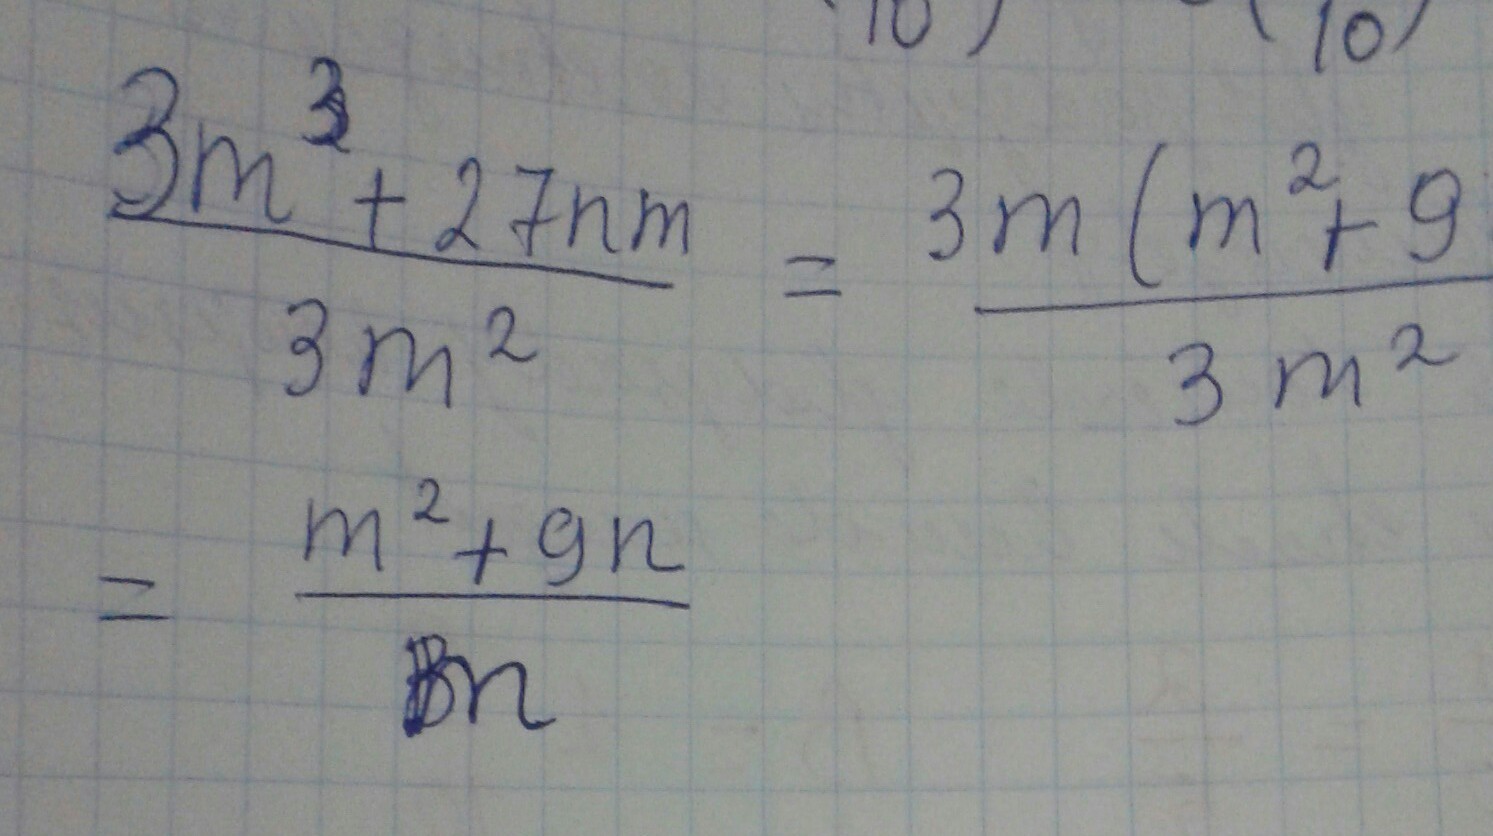 10) (10)
3m³ + 27nm = 3m(m² + 9
3m² 3m²
= m² + 9n
m